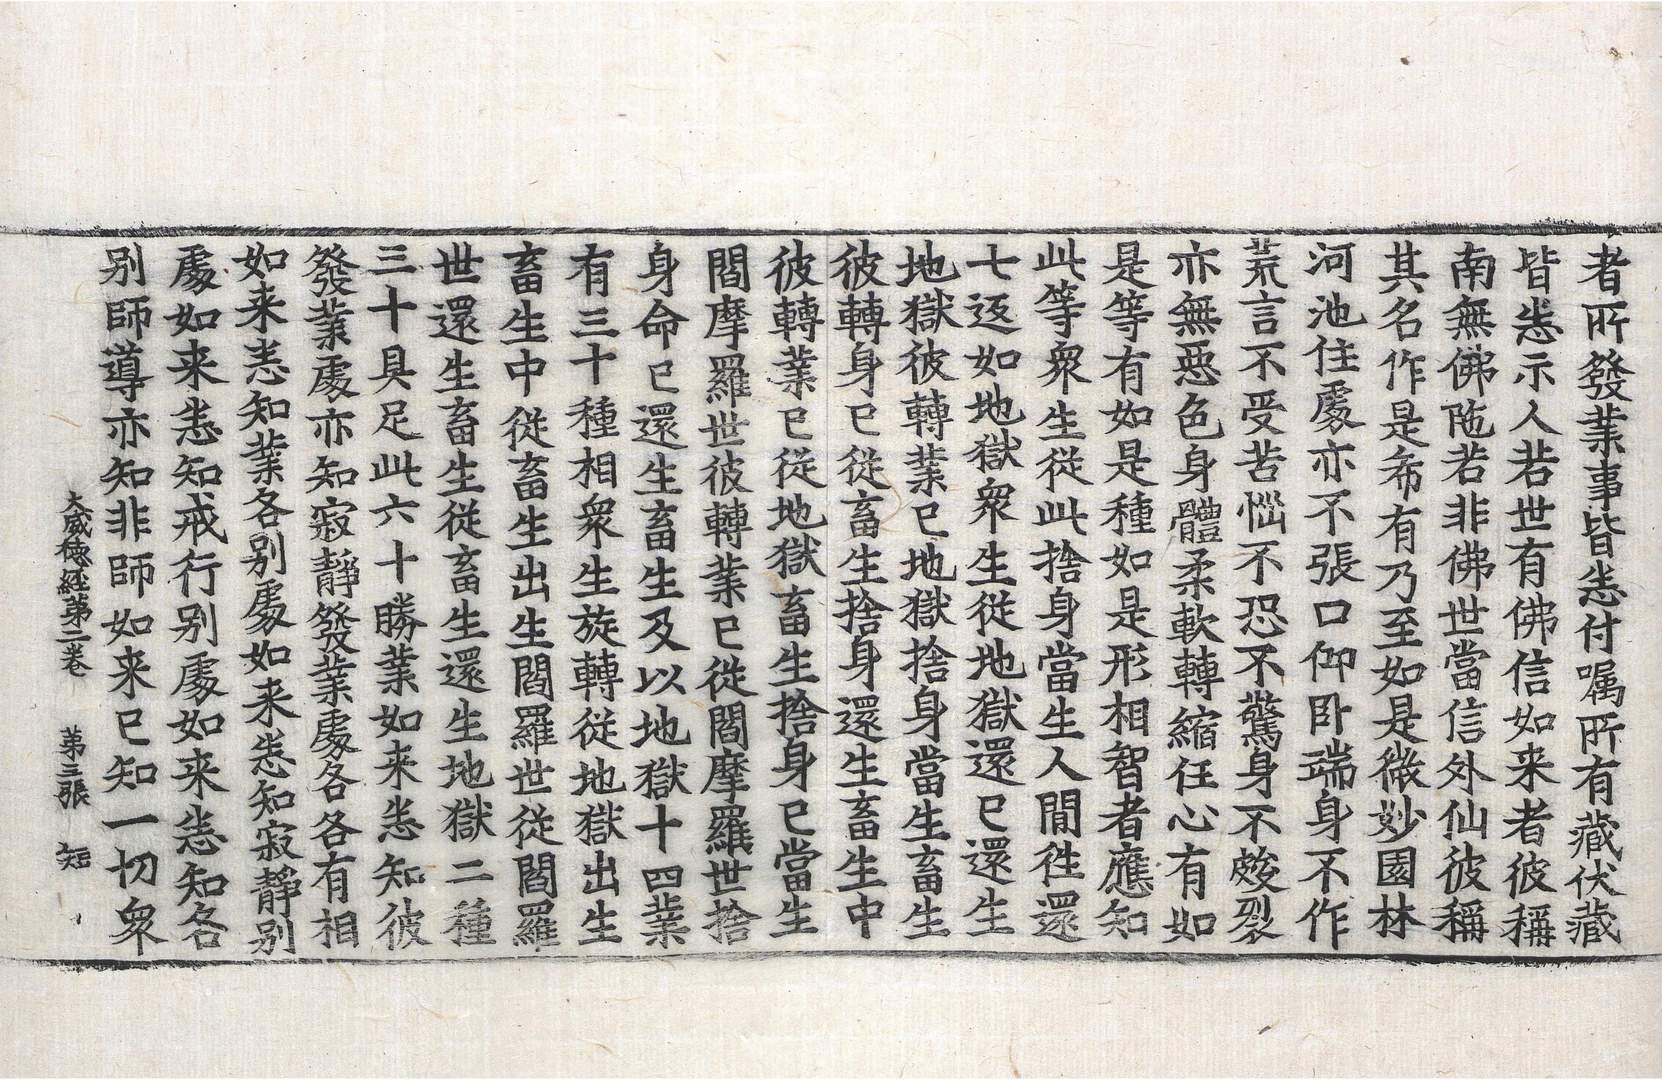 者所發業事皆悉付嘱所有藏伏藏
皆悉示人若世有佛信如来者彼稱
南無佛陁若非佛世當信外仙彼稱
其名作是布有乃至如是微妙園林
河池住處亦不張口仰卧端身不作
荒言不受苦惱不恐不驚身不皴裂
亦無惡色身體柔軟轉縮任心有如
是等有如是種如是形相智者應知
此等衆生從此捨身當生人間徃還
七返如地獄衆生從地獄還已還生
地獄彼轉業已地獄捨身當生畜生
彼轉身已從畜生捨身還生畜生中
彼轉業已從地獄畜生捨身已當生
閻摩羅世彼轉業已從閻摩羅世捨
身命已還生畜生及以地獄十四業
有三十種相衆生旋轉從地獄出生
畜生中從畜生出生閻羅世從閻羅
世還生畜生從畜生還生地獄二種
三十具足此六十勝業如来悉知彼
發業處亦知寂靜發業處各各有相
如来悉知業各别處如来悉知寂靜别
處如来悉知戒行别處如来悉知各
别師導亦知非師如来已知一切衆
大威德經第二卷 第三張 短